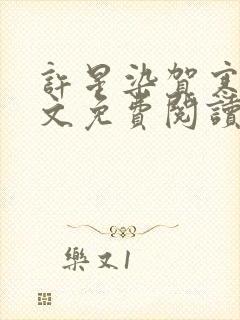 許星染賀寒
文免費閱讀
樂文1